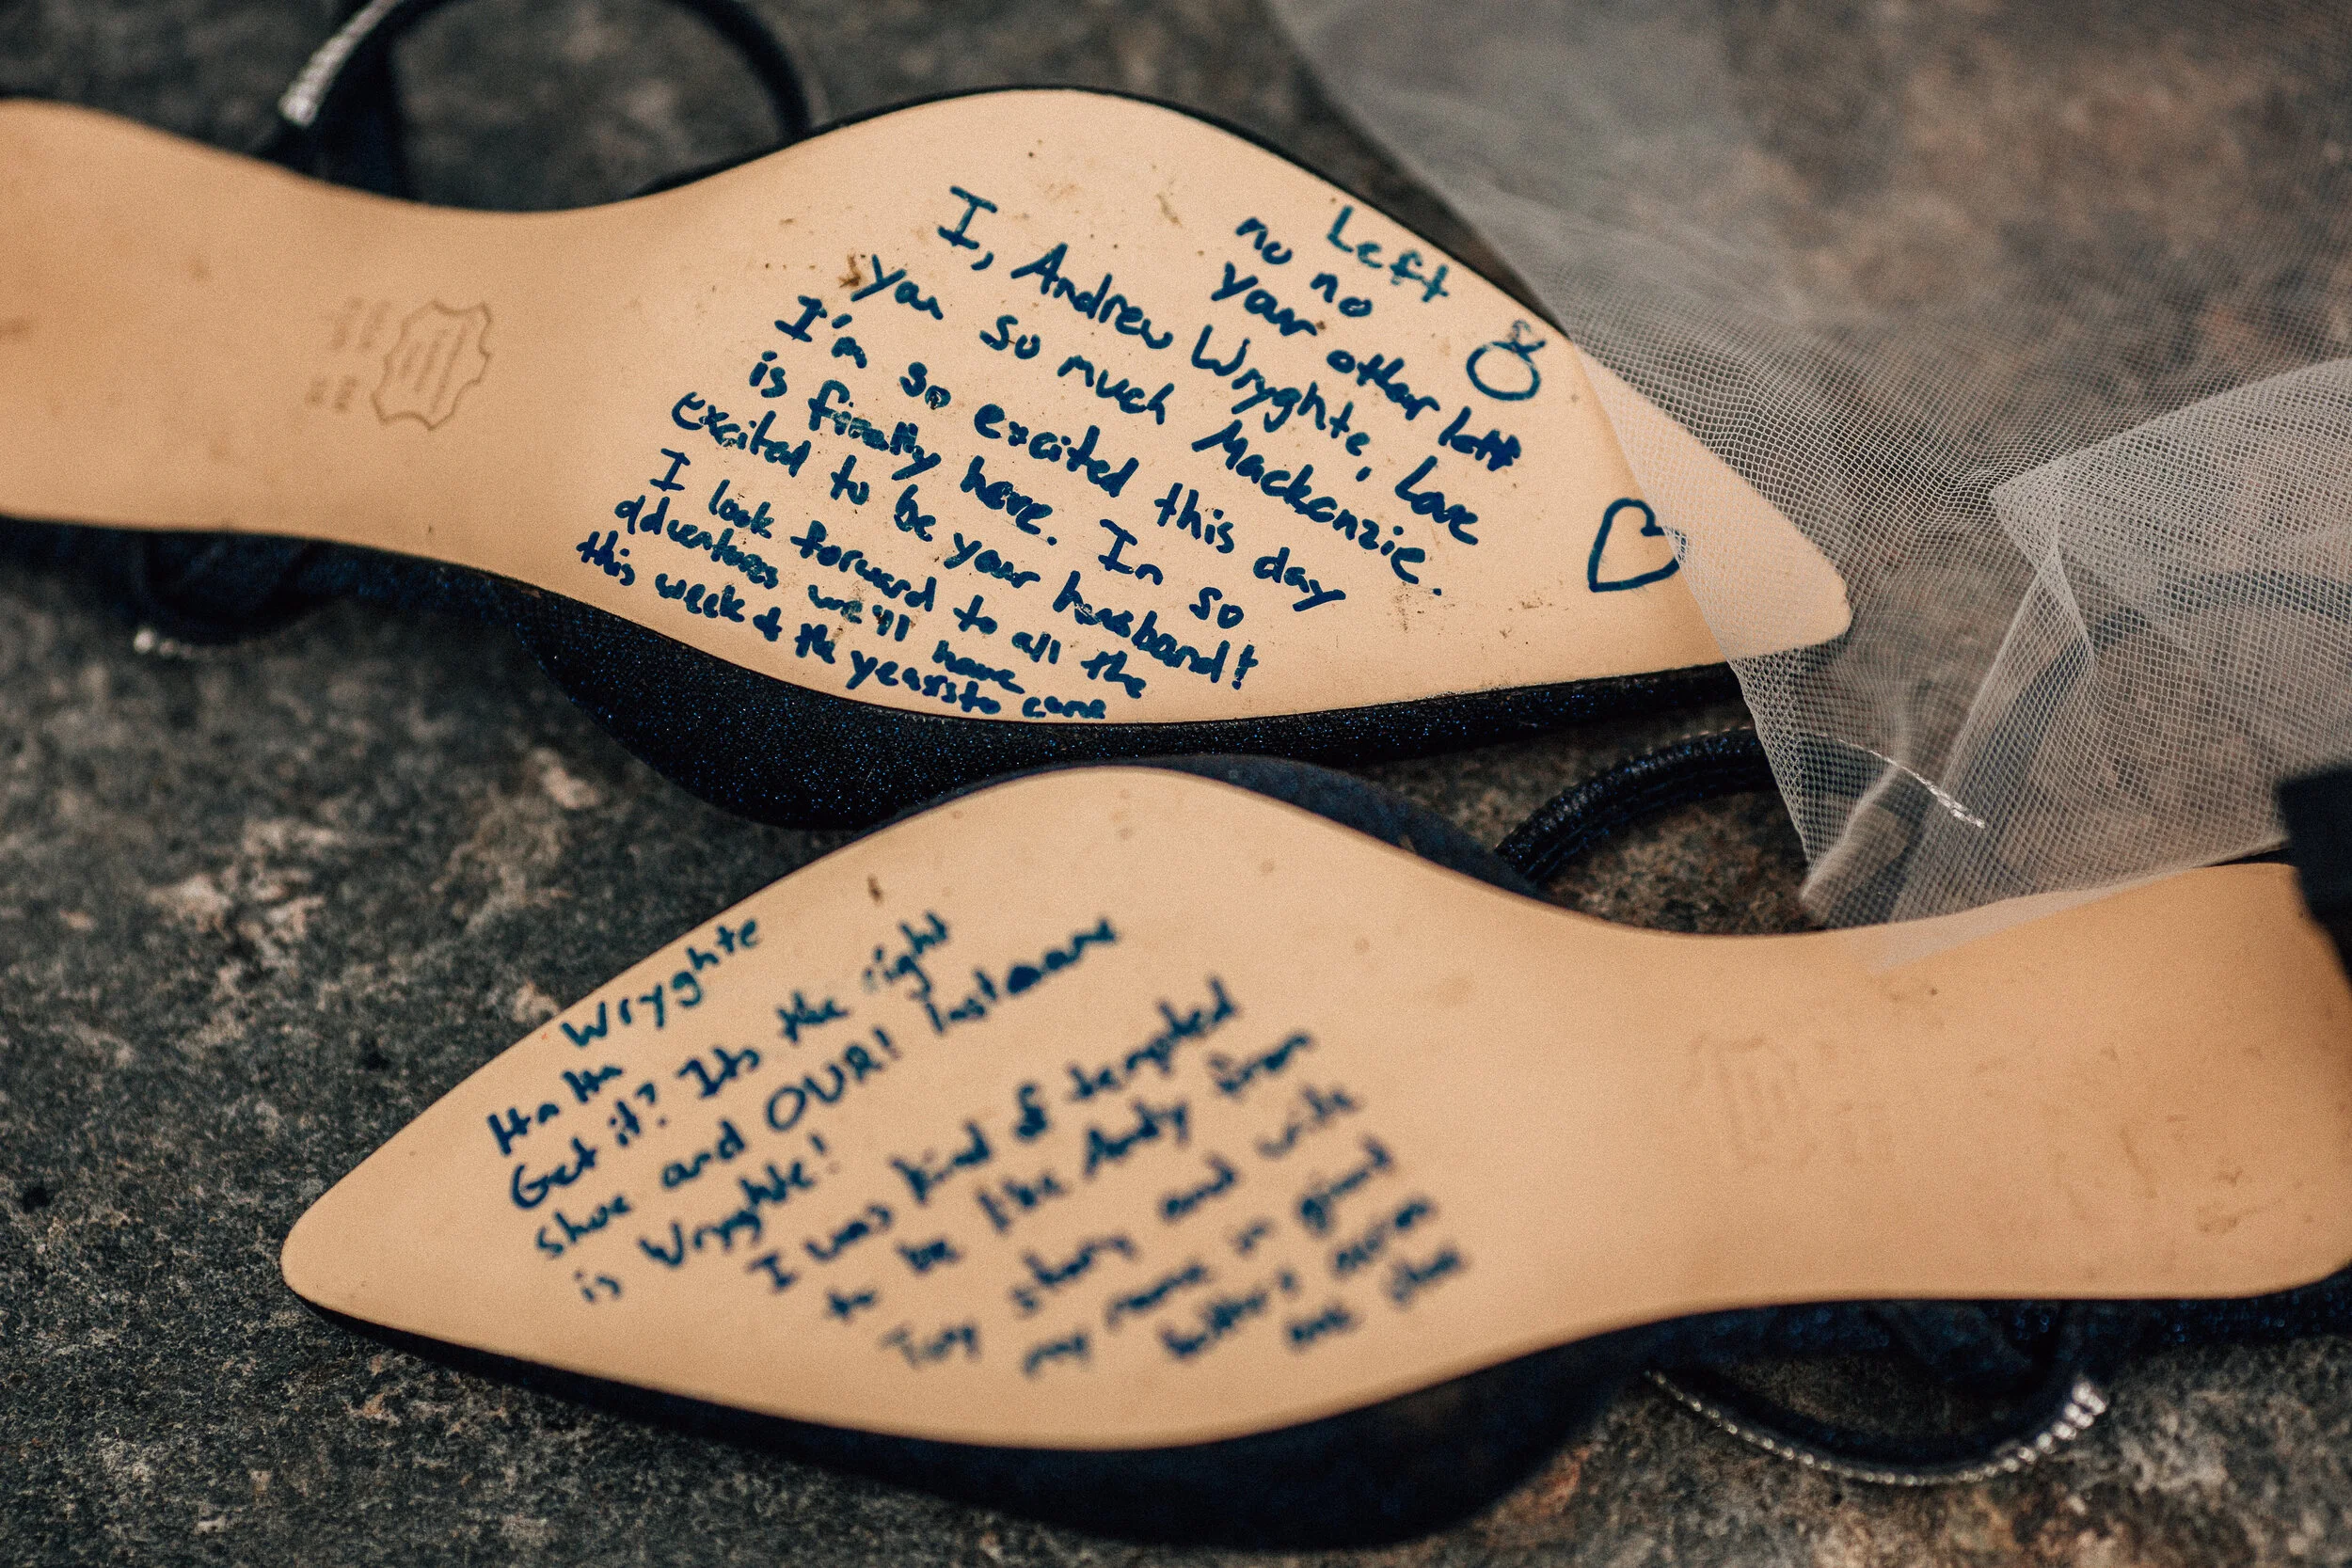 Left
no no
your other left
I, Andrew Wryghte, love
you so much Mackenzie.
I'm so excited this day
is finally here. In so
excited to be your husband!
I look forward to all the
adventures we'll have
this week & the years to come
Wryghte
Ha Ha
Get it? Its the right
shoe and OUR! last name
is Wryghte!
I was kind of tempted
to be like Andy from
Toy story and write
my name in